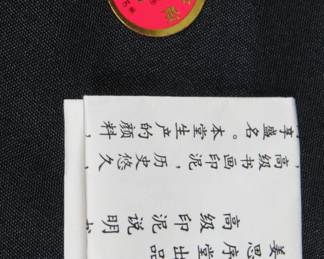 姜思序堂出品
高级印泥说明书
高级书画印泥，历史悠久，
享盛名。本堂生产的颜料，